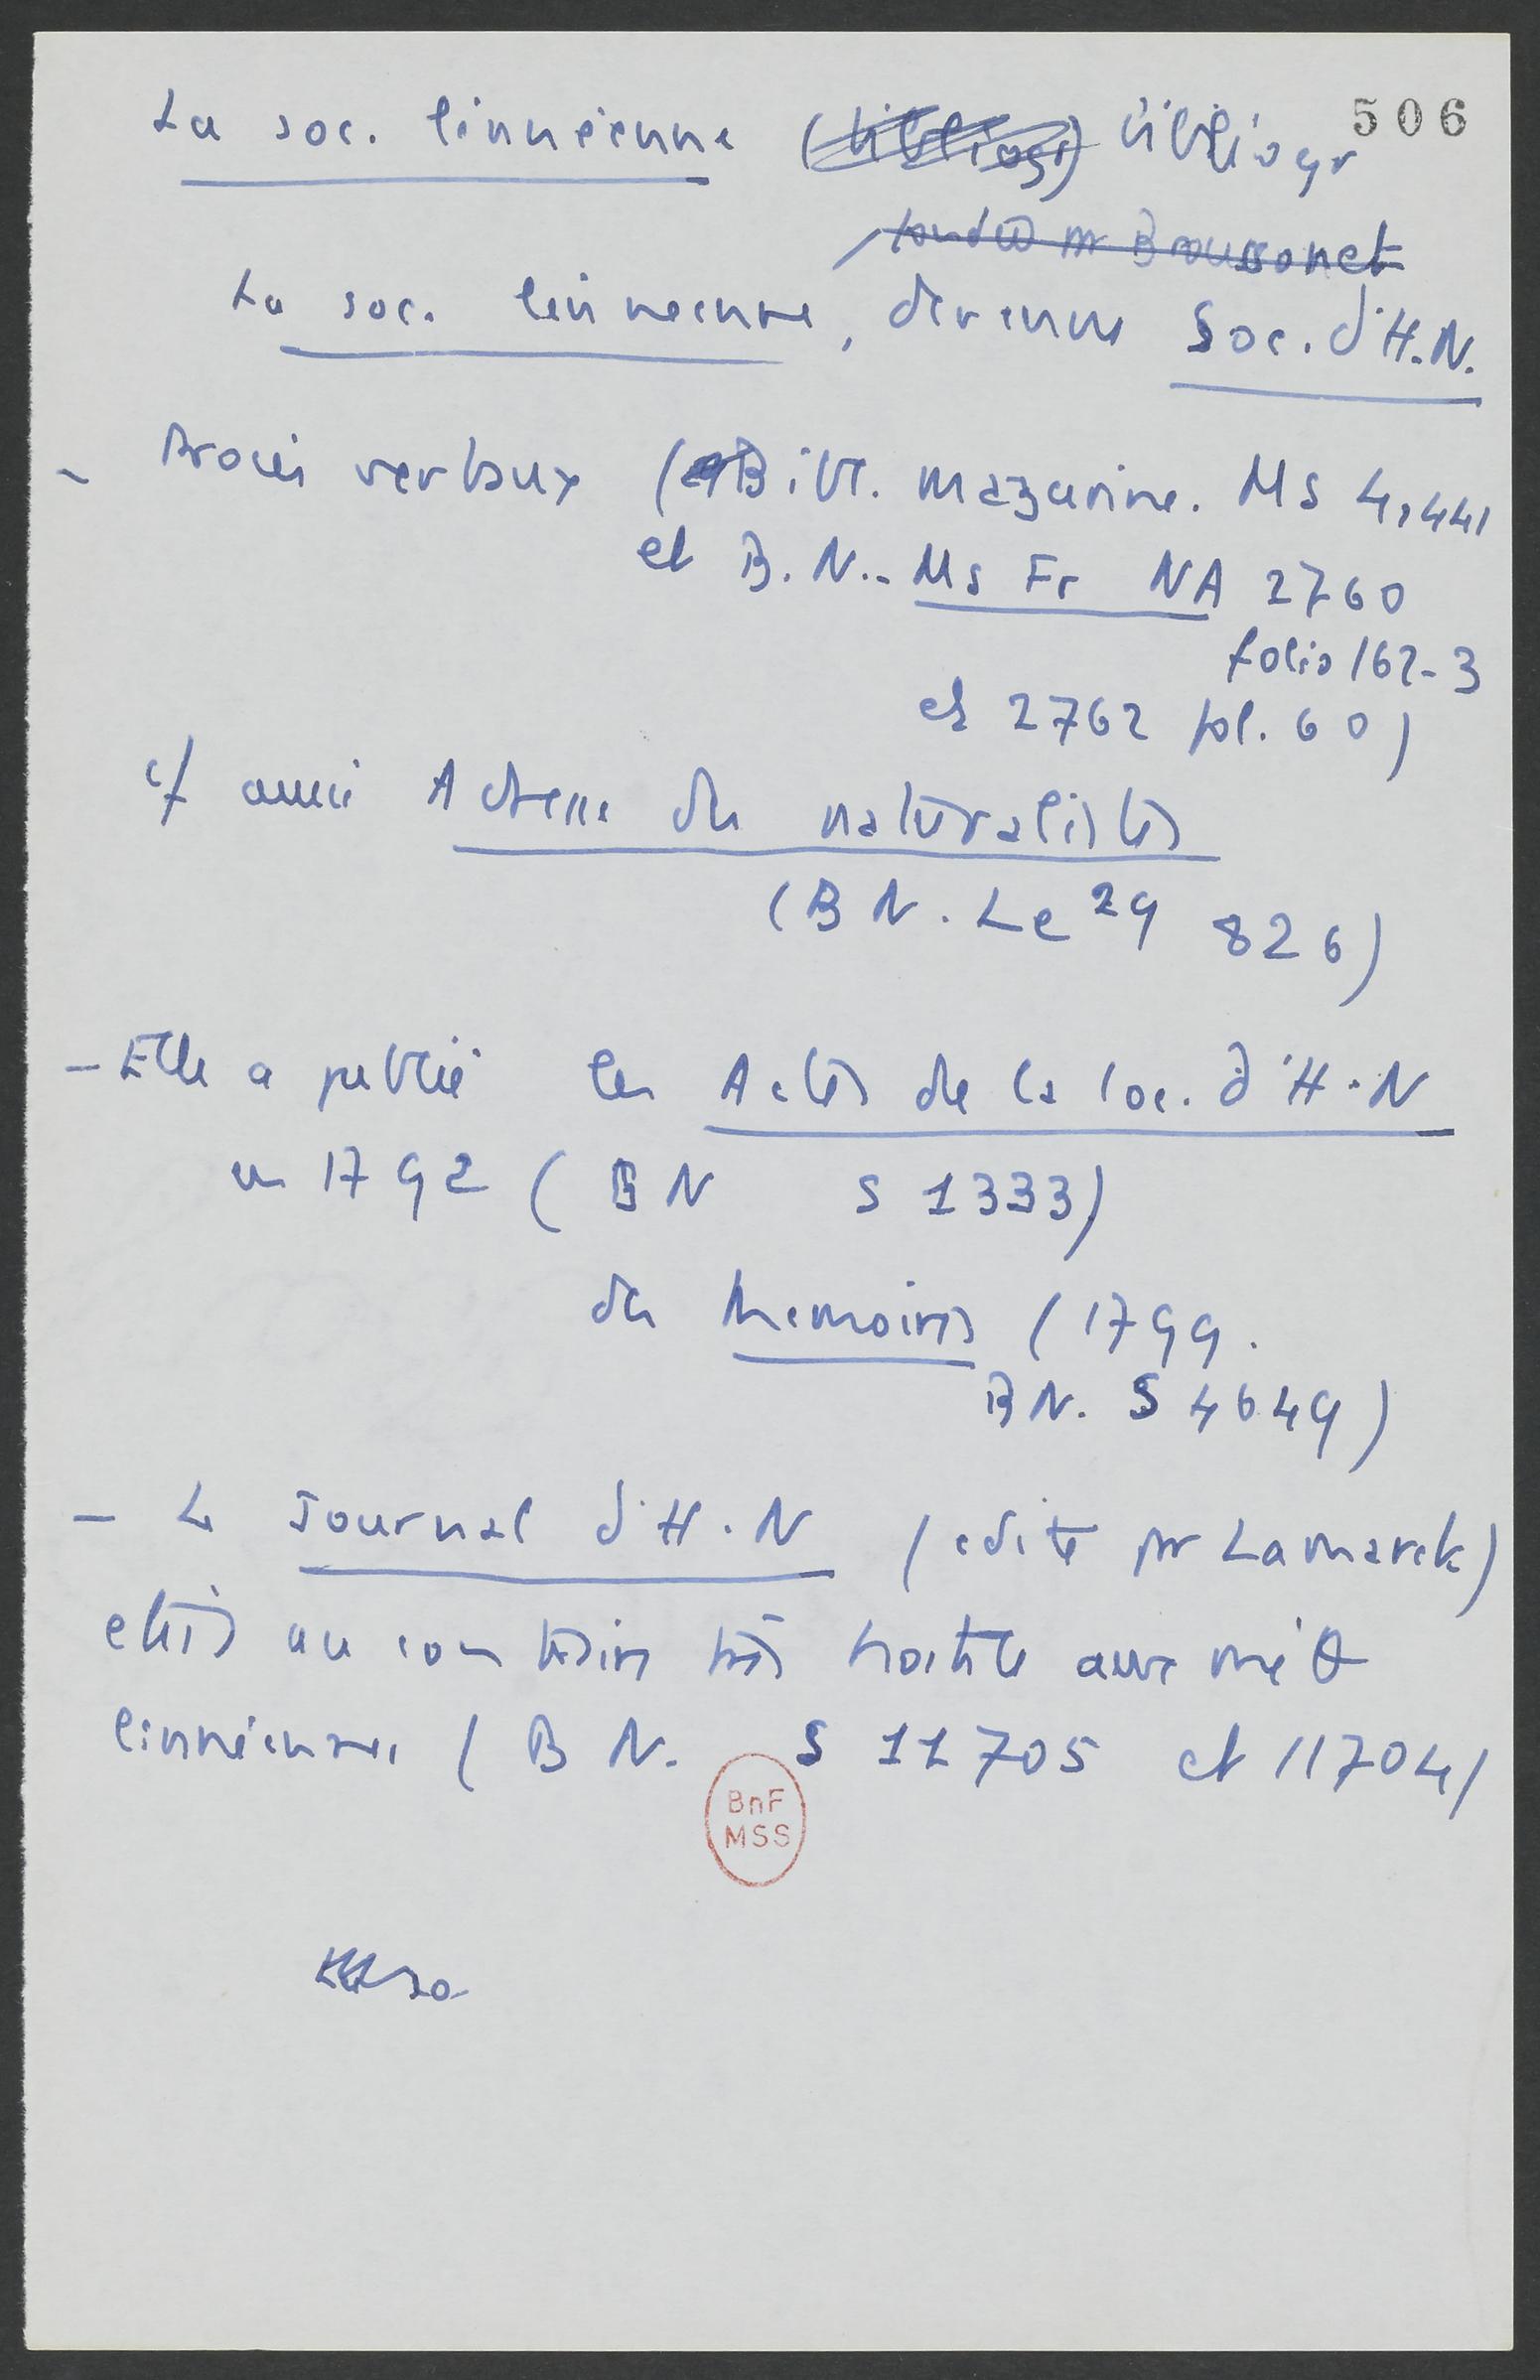 506
La soc. linnéenne (bibliogr) bibliogr
fondée par Broussonet
La soc. linneenne, devenue Soc. d'H.N.
- Procès verbaux (Bibl. mazarine. Ms 4,441
et B.N.- Ms Fr NA 2760
folio 162-3
et 2762 fol. 60)
cf aussi Adresse des naturalistes
(BN. Le 29 826)
- Elle a publié les Actes de la soc. d'H.N
en 1792 (BN S 1333)
des Memoires (1799.
BN. S 4649)
- Le Journal d'H.N (edité par Lamarck)
etait au contraire très hostile aux
linnéennes (BN. S 11705 et 11704)
BnF
MSS